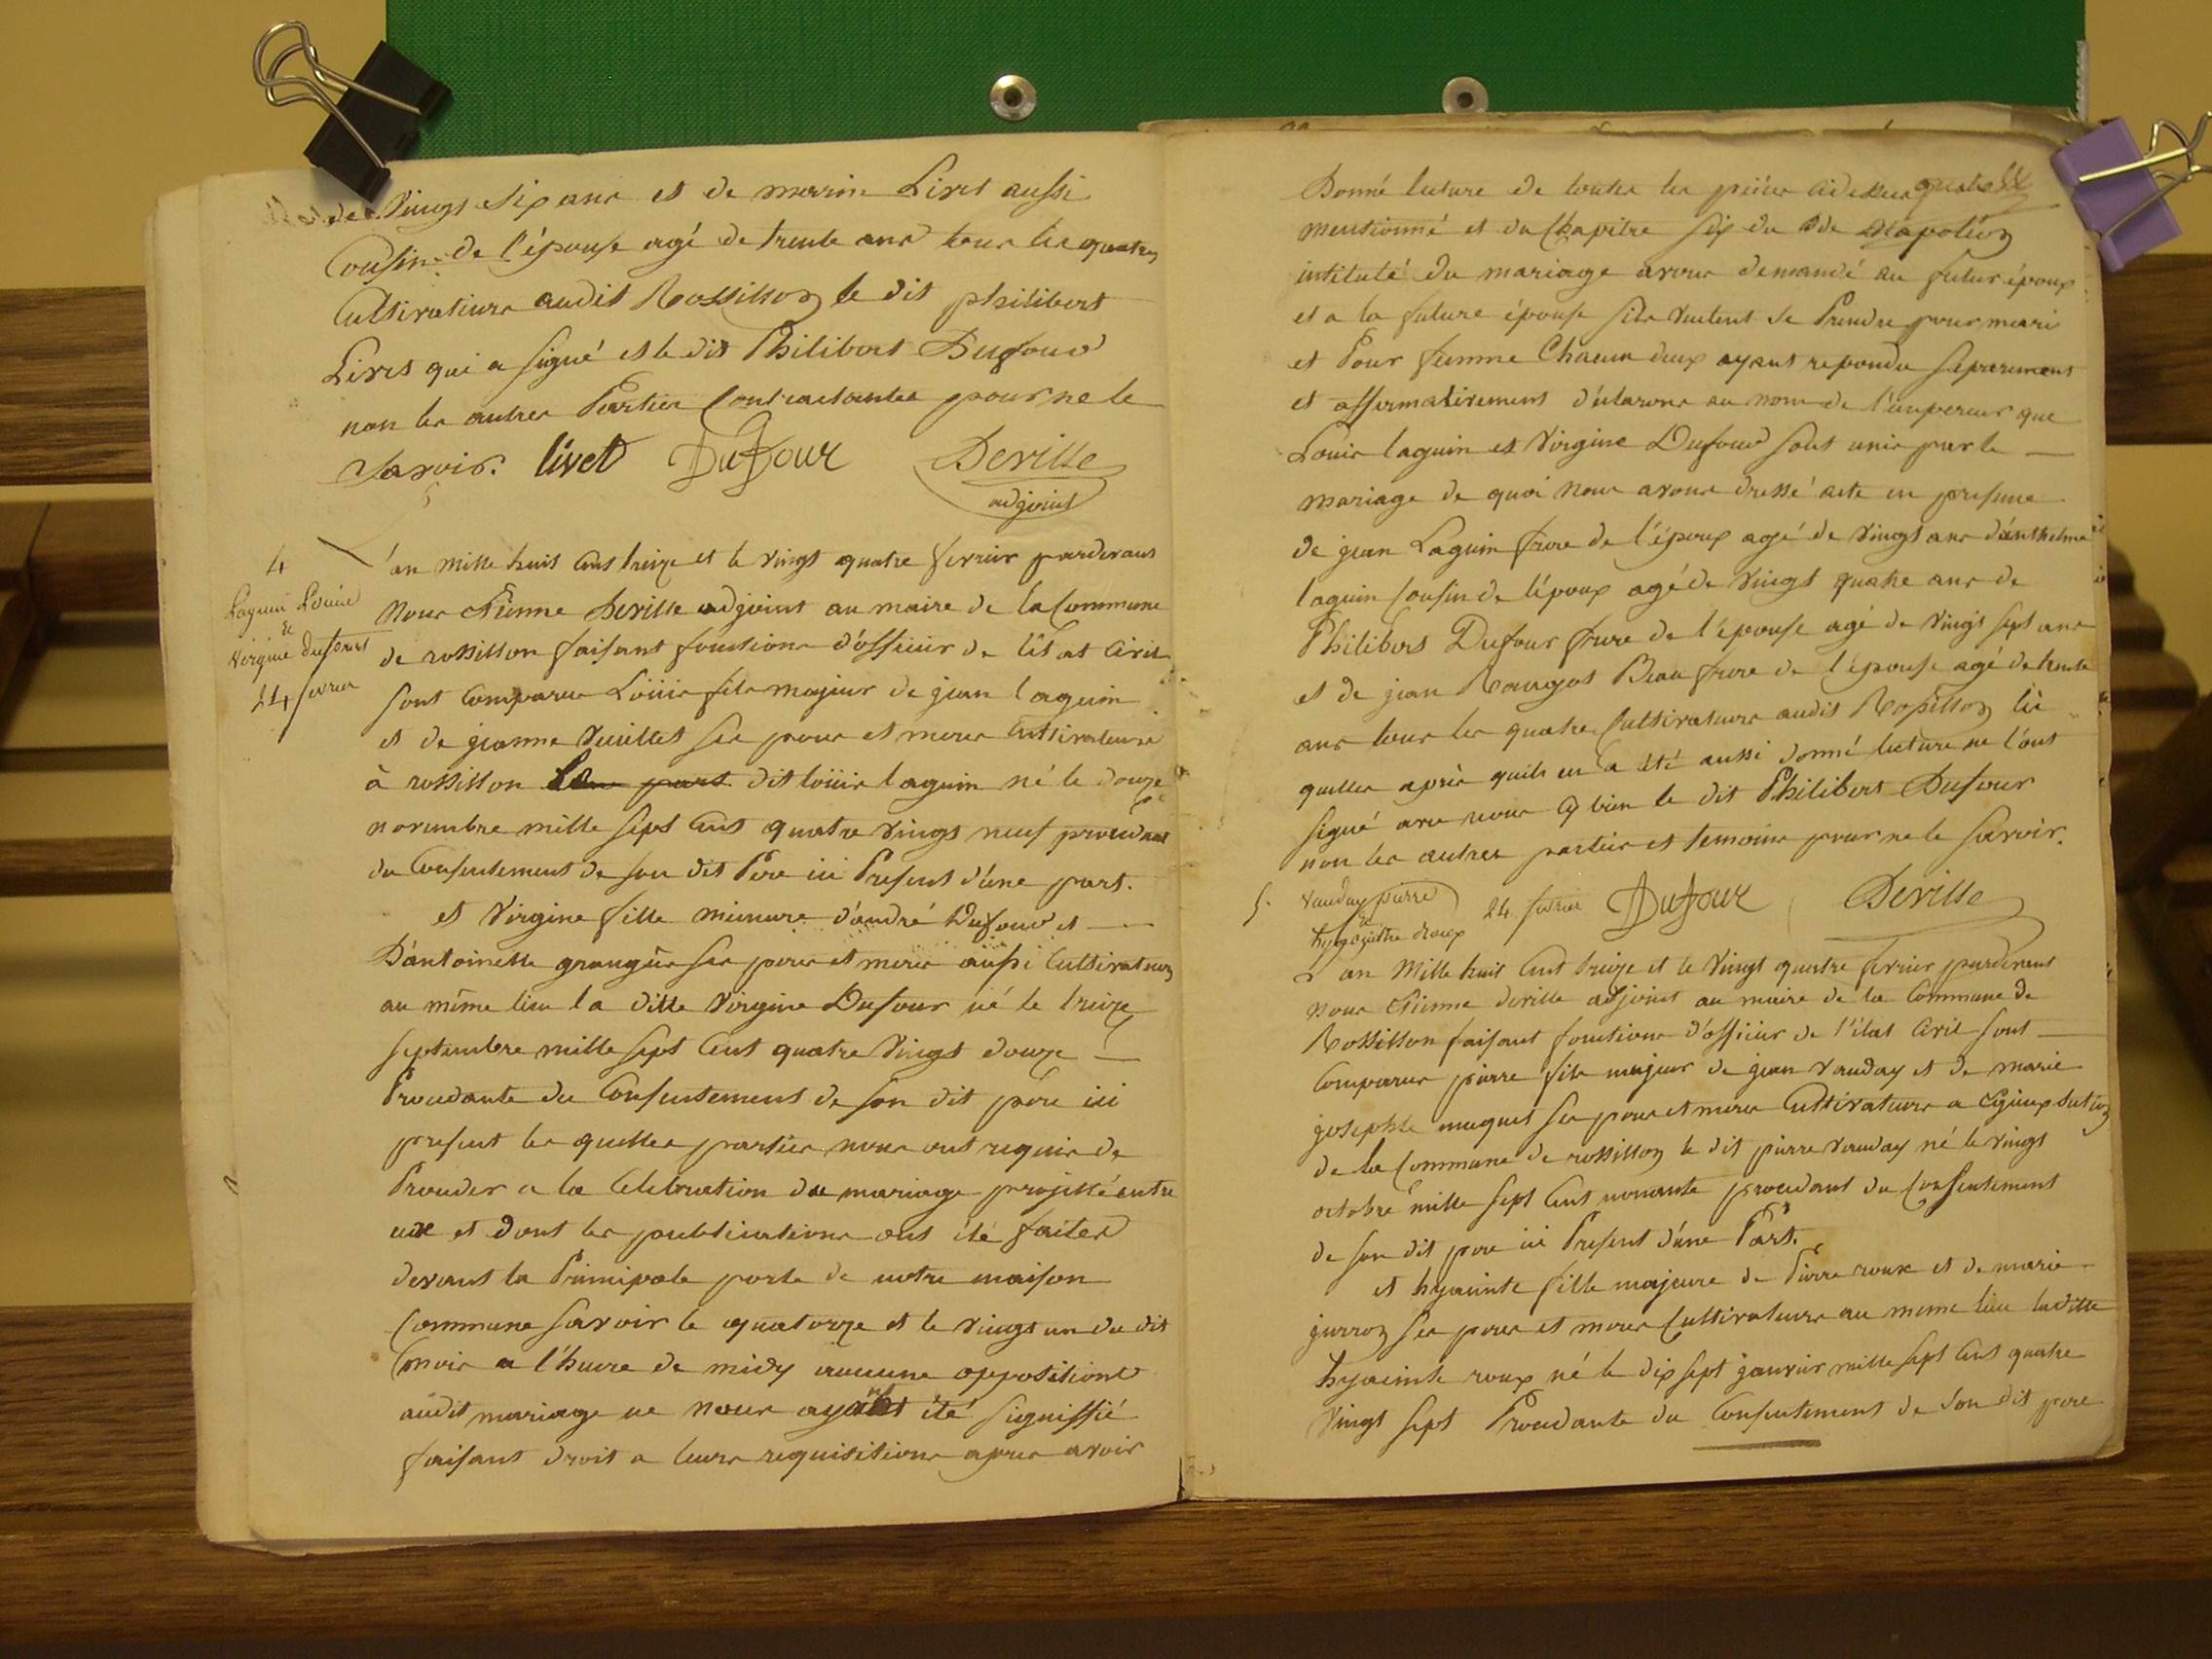 de Vingt Six ans et de marin Livet aussi
Cousin de l'épouse agé de trente ans tous les quatre
Cultivateurs audit Rossillon le dit philibert
Livet qui a signé et le dit Philibert Dufour
non les autres Parties Contractantes pour ne le
Savoir. livet DuFour Deville
adjoint
4
Laguin Louis
et
Virginie dufour
24 fevrier
l'an mille huit Cent treize et le Vingt quatre fevrier pardevant
Nous Etienne Deville adjoint au maire de la Commune
de rossillon faisant fonctions d'officier de l'état Civil
sont Comparus Loüis fils majeur de jean laguin
et de jeanne Vuillet ses pere et mere Cultivateurs
à rossillon dit loüis laguin né le douze
novembre mille sept Cent quatre Vingt neuf procedant
du Consentement de son dit Pere ici Present d'une part.
et Virgine fille mineure d'andré Dufour et
D'antoinette grangér ses peres et meres aussi Cultivateurs
au même lieu la ditte Virgine Dufour né le treize
septembre mille sept Cent quatre Vingt douze
Procedante du Consentement de son dit père ici
present les quelles parties nous ont requis de
Proceder a la Celebration du mariage projetté entre
eux et dont les publications ont été faites
devant la Principale porte de notre maison
Commune savoir le quatorze et le vingt un du dit
mois a l'heure de midy aucune oppositions
audit mariage ne nous ayant été signiffié
faisant droit a leurs requisitions apres avoir
Donné lecture de toutes les pièces cidessus
mentionné et du Chapitre six du Code Napoléon
intitulé du mariage avons demandé au futur époux
et a la future épouse s'ils veulent se Prendre pour mari
et Pour femme Chacun deux ayant repondu Séparement
et affirmativement déclarons au nom de l'empereur que
Louis laguin et Virgine Dufour sont unis par le
mariage de quoi nous avons dressé acte en presence
de jean Laguin frere de l'époux agé de Vingt ans d'anthelme
laguin Cousin de l'époux agé de Vingt quatre ans de
Philibert Dufour frere de l'épouse agé de Vingt sept ans
et de jean Beau frere de l'épouse agé de trente
ans tous les quatre Cultivateurs audit Rossillon les
quelles après quils en a été aussi donné lecture ne l'ont
signé avec nous le dit Philibert Dufour
non les autres parties et temoins pour ne le savoir.
5. vauday pierre
et
hyacinthe roux
24 fevrier DuFour Deville
L'an Mille huit Cent treize et le Vingt quatre fevrier pardevant
nous Etienne deville adjoint au maire de la Commune de
Rossillon faisant fonctions d'officier de l'état Civil sont
Comparus pierre fils majeur de jean vauday et de marie
josephte muguet ses pere et mere Cultivateurs a
de la Commune de rossillon le dit pierre vauday né le vingt
octobre mille sept Cent nonante procedant du Consentement
de son dit pere ici Present d'une Part.
et hyacinte fille majeure de Pierre roux et de marie
jurron ses peres et meres Cultivateurs au meme lieu laditte
hyacinte roux né le dix sept janvier mille sept Cent quatre
Vingt sept Procedante du Consentement de son dit pere